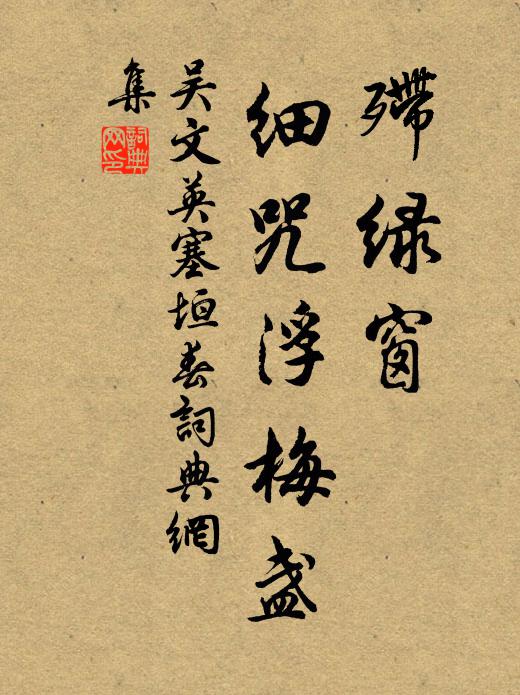 殢绿窗
细咒浮梅盏
吴文英塞垣春詞典網
集
詞典网印